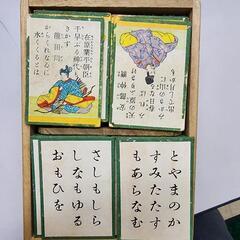 在原業平朝臣
千早ふる神代も
きかす
龍田川
からくれなゐに
水くくるとは
安倍仲麿
とやまのか
すみたたす
もあらなむ
さしもしら
しなもゆる
おもひを